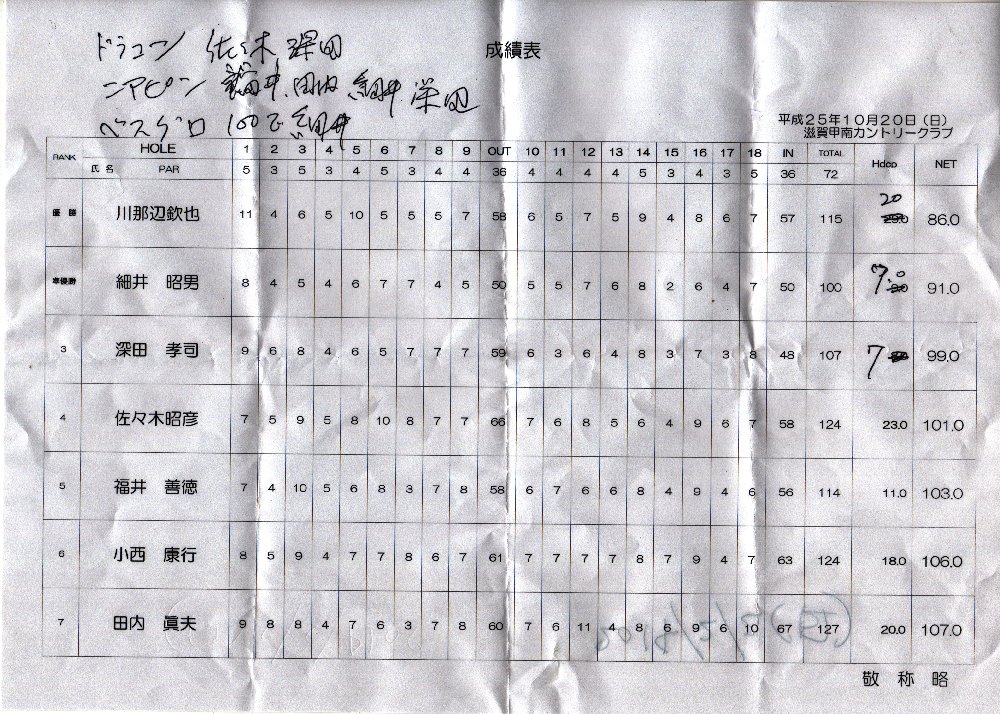 ドラコン 佐々木 深田
成績表
ニアピン 福井、田内 細井
ベスグロ 100で細井
平成25年10月20日(日)
滋賀甲南カントリークラブ
RANK HOLE 1 2 3 4 5 6 7 8 9 OUT 10 11 12 13 14 15 16 17 18 IN TOTAL Hdcp NET
氏名 PAR 5 3 5 3 4 5 3 4 4 36 4 4 4 4 5 3 4 3 5 36 72
優勝 川那辺欽也 11 4 6 5 10 5 5 5 7 58 6 5 7 5 9 4 8 6 7 57 115 20 86.0
準優勝 細井 昭男 8 4 5 4 6 7 7 4 5 50 5 5 7 6 8 2 6 4 7 50 100 7.0 91.0
3 深田 孝司 9 6 8 4 6 5 7 7 7 59 6 3 6 4 8 3 7 3 8 48 107 7 99.0
4 佐々木昭彦 7 5 9 5 8 10 8 7 7 66 7 6 8 5 6 4 9 6 7 58 124 23.0 101.0
5 福井 善徳 7 4 10 5 6 8 3 7 8 58 6 7 6 6 8 4 9 4 6 56 114 11.0 103.0
6 小西 康行 8 5 9 4 7 7 8 6 7 61 7 7 7 7 8 7 9 4 7 63 124 18.0 106.0
7 田内 眞夫 9 8 8 4 7 6 3 7 8 60 7 6 11 4 8 6 9 6 10 67 127 20.0 107.0
敬称略